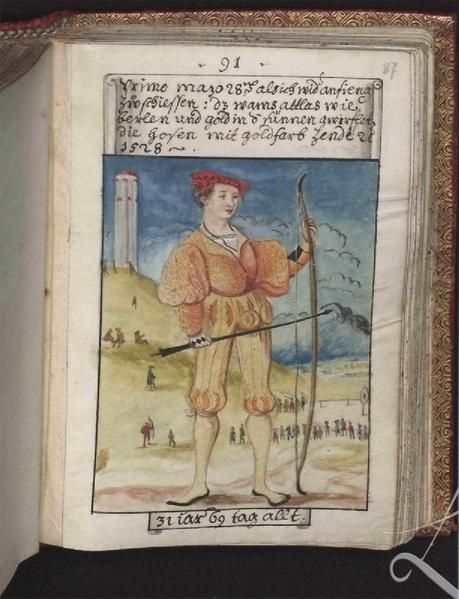 - 91 -
87
Primo mazo 28 als ich wid anfieng
zů schiessen : dz wams attlas wie
berlen und gold in d sünnen gworffen
die hosen mit goldfarb zendel
1528
31 iar 69 tag allt.